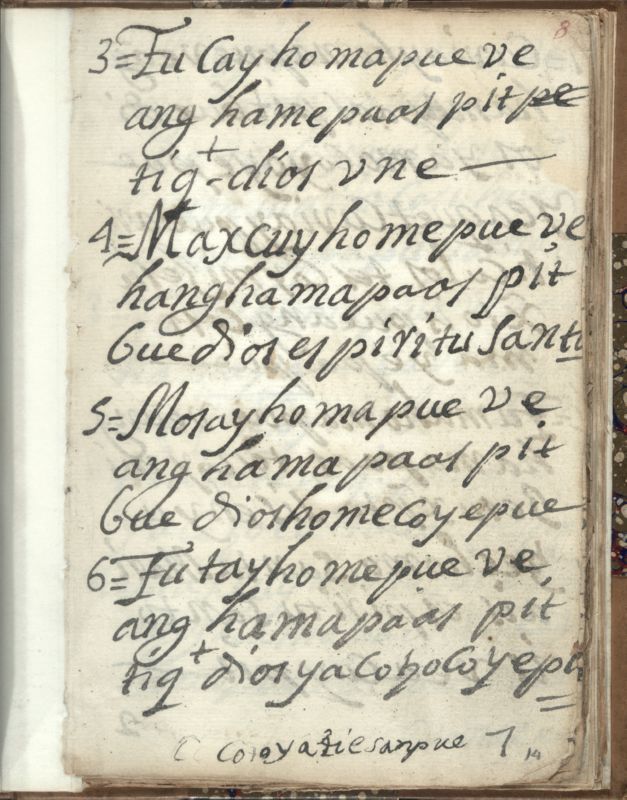 8
3=Tu Cay homapue ve
ang hamepaos pit pe
tiq+-dios vne —
4=Maxcuy homepue ve
hang hamapaos pit
Gue dios espiritu Santi
5=Mosay homapue ve
ang hama paos pit
Gue dios home coyepue
6=Tu tay homepue ve
ang hamapaos pit
tiq+ dios
7
14